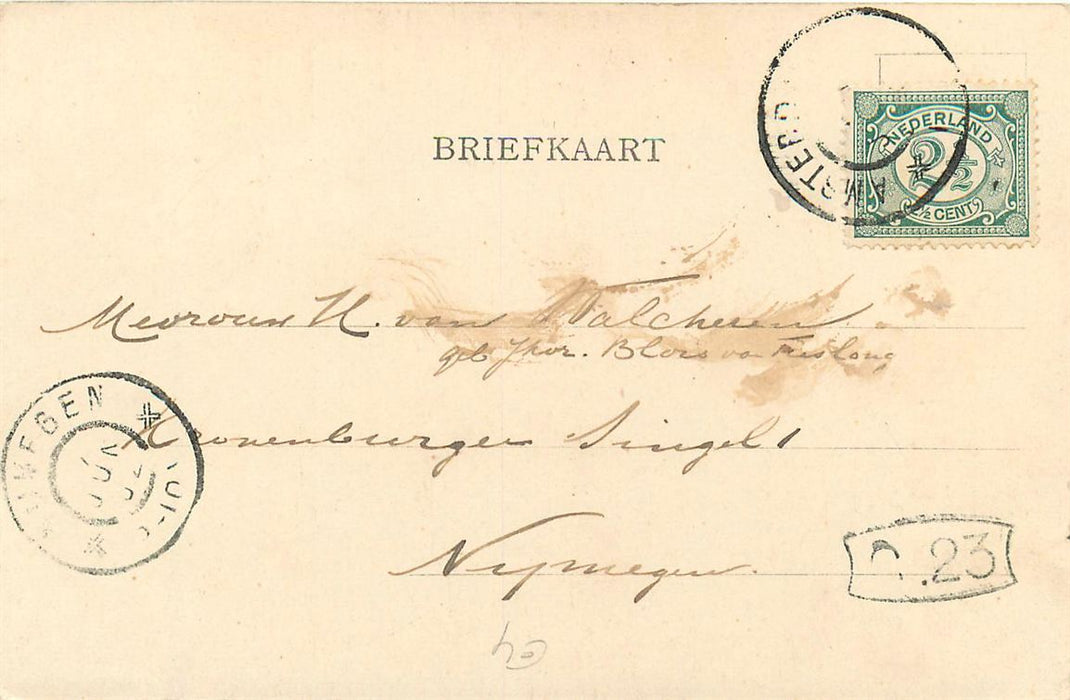 BRIEFKAART
AMSTERD
NEDERLAND
2½
2½ CENT
Mevrouw H. van Walcheren
geb Jkvr. Blois van Treslong
Kronenburger Singel 1
Nijmegen
NIJMEGEN
.23